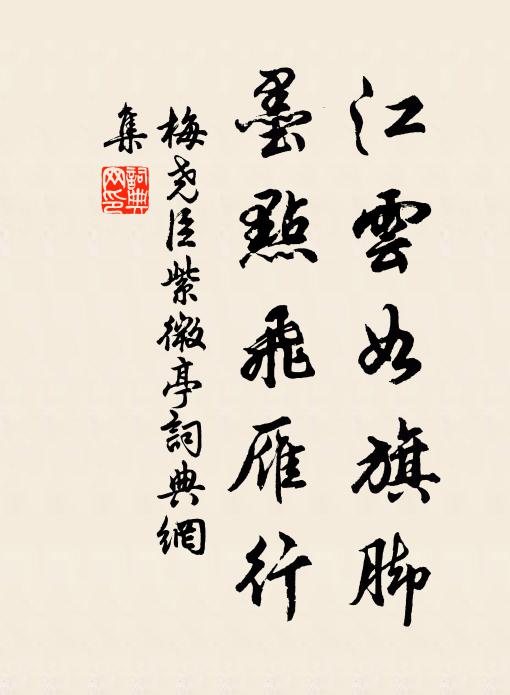 江雲如旗脚
墨點飛雁行
梅堯臣紫微亭詞典網
集
詞典網印